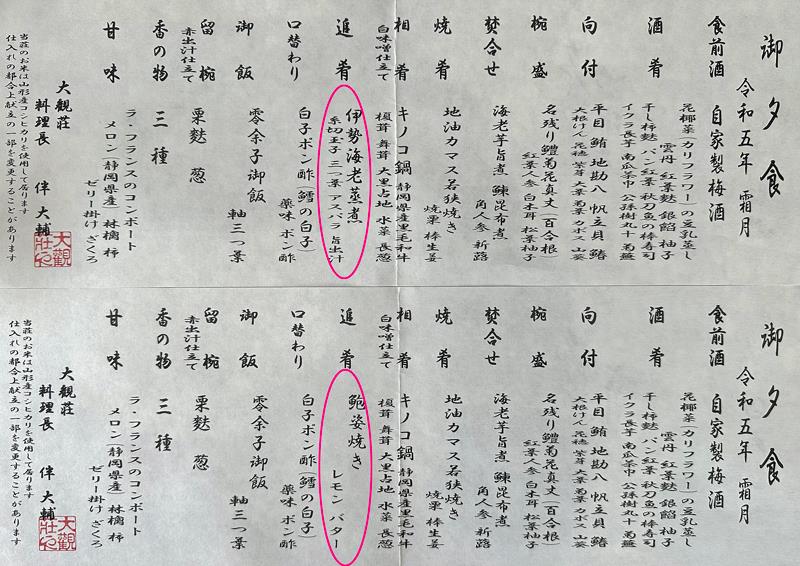 御夕食
令和五年 霜月
食前酒 自家製梅酒
酒肴 花椰菜(カリフラワー)の豆乳蒸し
雲丹 紅葉麩 銀餡 柚子
干し柿麩 パン紅葉 秋刀魚の棒寿司
イクラ長芋 南瓜茶巾 公孫樹丸十 菊蕪
向付 平目 鮪 地勘八 帆立貝 鰆
大根けん 花穂 紫芽 大葉 菊葉 カボス 山葵
椀盛 名残り鱧菊花真丈(百合根)
紅葉人参 白木耳 松葉柚子
焚合せ 海老芋旨煮 鰊昆布煮
角人参 新蕗
焼肴 地油カマス若狭焼き
焼栗 棒生姜
相肴 キノコ鍋 静岡県産黒毛和牛
白味噌仕立て 榎茸 舞茸 大黒占地 水菜 長葱
追肴 伊勢海老蒸煮
糸切玉子 三つ葉 アスパラ 旨出汁
口替わり 白子ポン酢(鱈の白子)
薬味 ポン酢
御飯 零余子御飯
軸三つ葉
留椀 栗麩 葱
赤出汁仕立て
香の物 三種
甘味 ラ・フランスのコンポート
メロン(静岡県産) 林檎 柿
ゼリー掛け ざくろ
大観荘
料理長 伴 大輔
当荘のお米は山形産コシヒカリを使用して居ります
仕入れの都合上献立の一部を変更することがあります
御夕食
令和五年 霜月
食前酒 自家製梅酒
酒肴 花椰菜(カリフラワー)の豆乳蒸し
雲丹 紅葉麩 銀餡 柚子
干し柿麩 パン紅葉 秋刀魚の棒寿司
イクラ長芋 南瓜茶巾 公孫樹丸十 菊蕪
向付 平目 鮪 地勘八 帆立貝 鰆
大根けん 花穂 紫芽 大葉 菊葉 カボス 山葵
椀盛 名残り鱧菊花真丈(百合根)
紅葉人参 白木耳 松葉柚子
焚合せ 海老芋旨煮 鰊昆布煮
角人参 新蕗
焼肴 地油カマス若狭焼き
焼栗 棒生姜
相肴 キノコ鍋 静岡県産黒毛和牛
白味噌仕立て 榎茸 舞茸 大黒占地 水菜 長葱
追肴 鮑姿焼き
レモン バター
口替わり 白子ポン酢(鱈の白子)
薬味 ポン酢
御飯 零余子御飯
軸三つ葉
留椀 栗麩 葱
赤出汁仕立て
香の物 三種
甘味 ラ・フランスのコンポート
メロン(静岡県産) 林檎 柿
ゼリー掛け ざくろ
大観荘
料理長 伴 大輔
当荘のお米は山形産コシヒカリを使用して居ります
仕入れの都合上献立の一部を変更することがあります